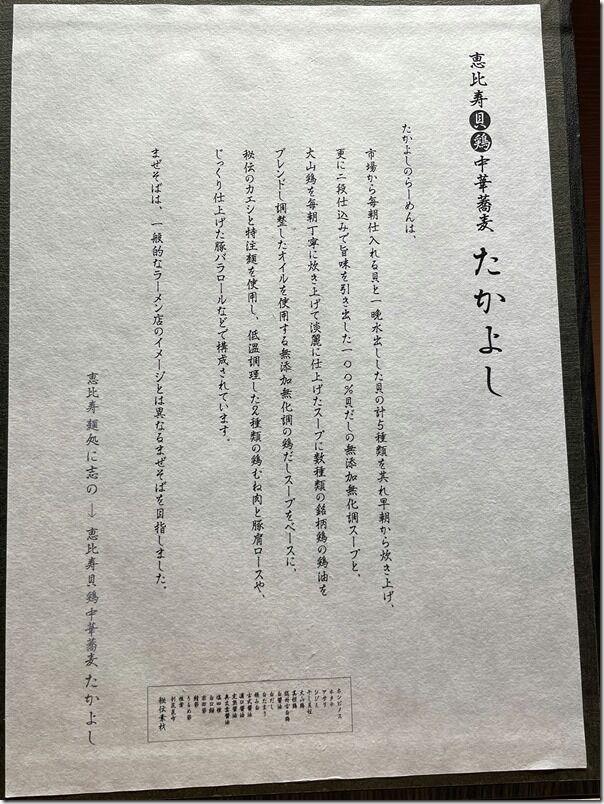 恵比寿 貝 鶏 中華蕎麦 たかよし
たかよしのらーめんは、
市場から毎朝仕入れる貝と一晩水出しした貝の計5種類を其れ早朝から炊き上げ、
更に二段仕込みで旨味を引き出した一〇〇%貝だしの無添加無化調スープと、
大山鶏を毎朝丁寧に炊き上げて淡麗に仕上げたスープに数種類の銘柄鶏の鶏油を
ブレンドし調整したオイルを使用する無添加無化調の鶏だしスープをベースに、
秘伝のカエシと特注麺を使用し、低温調理した2種類の鶏むね肉と豚肩ロースや、
じっくり仕上げた豚バラロールなどで構成されています。
まぜそばは、一般的なラーメン店のイメージとは異なるまぜそばを目指しました。
恵比寿 麺処に志の → 恵比寿貝鶏中華蕎麦 たかよし
ホンビノス
ホタテ
アサリ
シジミ
干し貝柱
大山鶏
白醤油
白だし
白たまり
古式醤油
濃口醤油
塩四種
白口鰯
宗田節
鯖節
うるめ節
椎茸
利尻昆布
秘伝素材